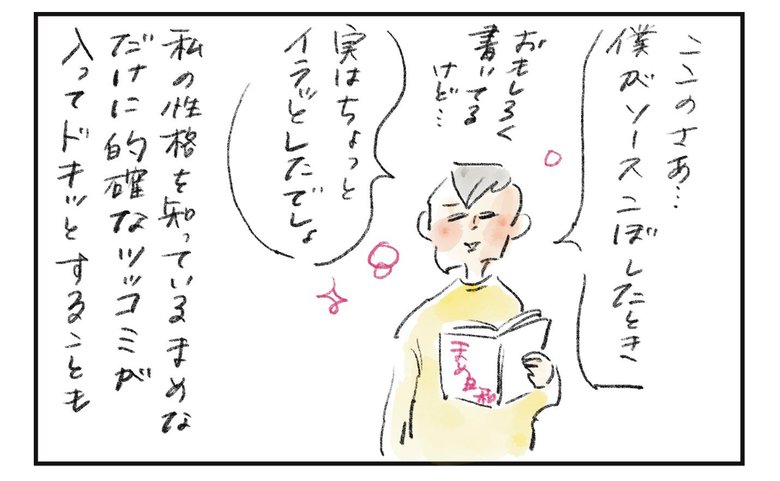 ここのさぁ…
僕がソースこぼしたとき
おもしろく
書いてる
けど…
実はちょっと
イラッとしたでしょ
私の性格を知っているまめな
だけに的確なツッコミが
入ってドキッとすることも
まめ日和